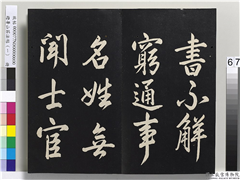 書不解
窮通事
名姓無
聞士宦
67